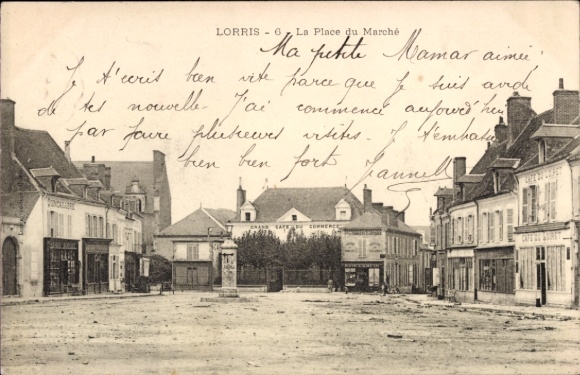 LORRIS - 6 - La Place du Marché
Ma petite Maman aimée
Je t'écris bien vite parce que je suis avide
de tes nouvelle - J'ai commencé aujourd'hui
par faire plusieurs visites - Je t'embrasse
bien bien fort Jeannell
QUINCAILLERIE
GRAND CAFÉ DU COMMERCE
CAFÉ DU
CAFÉ DU